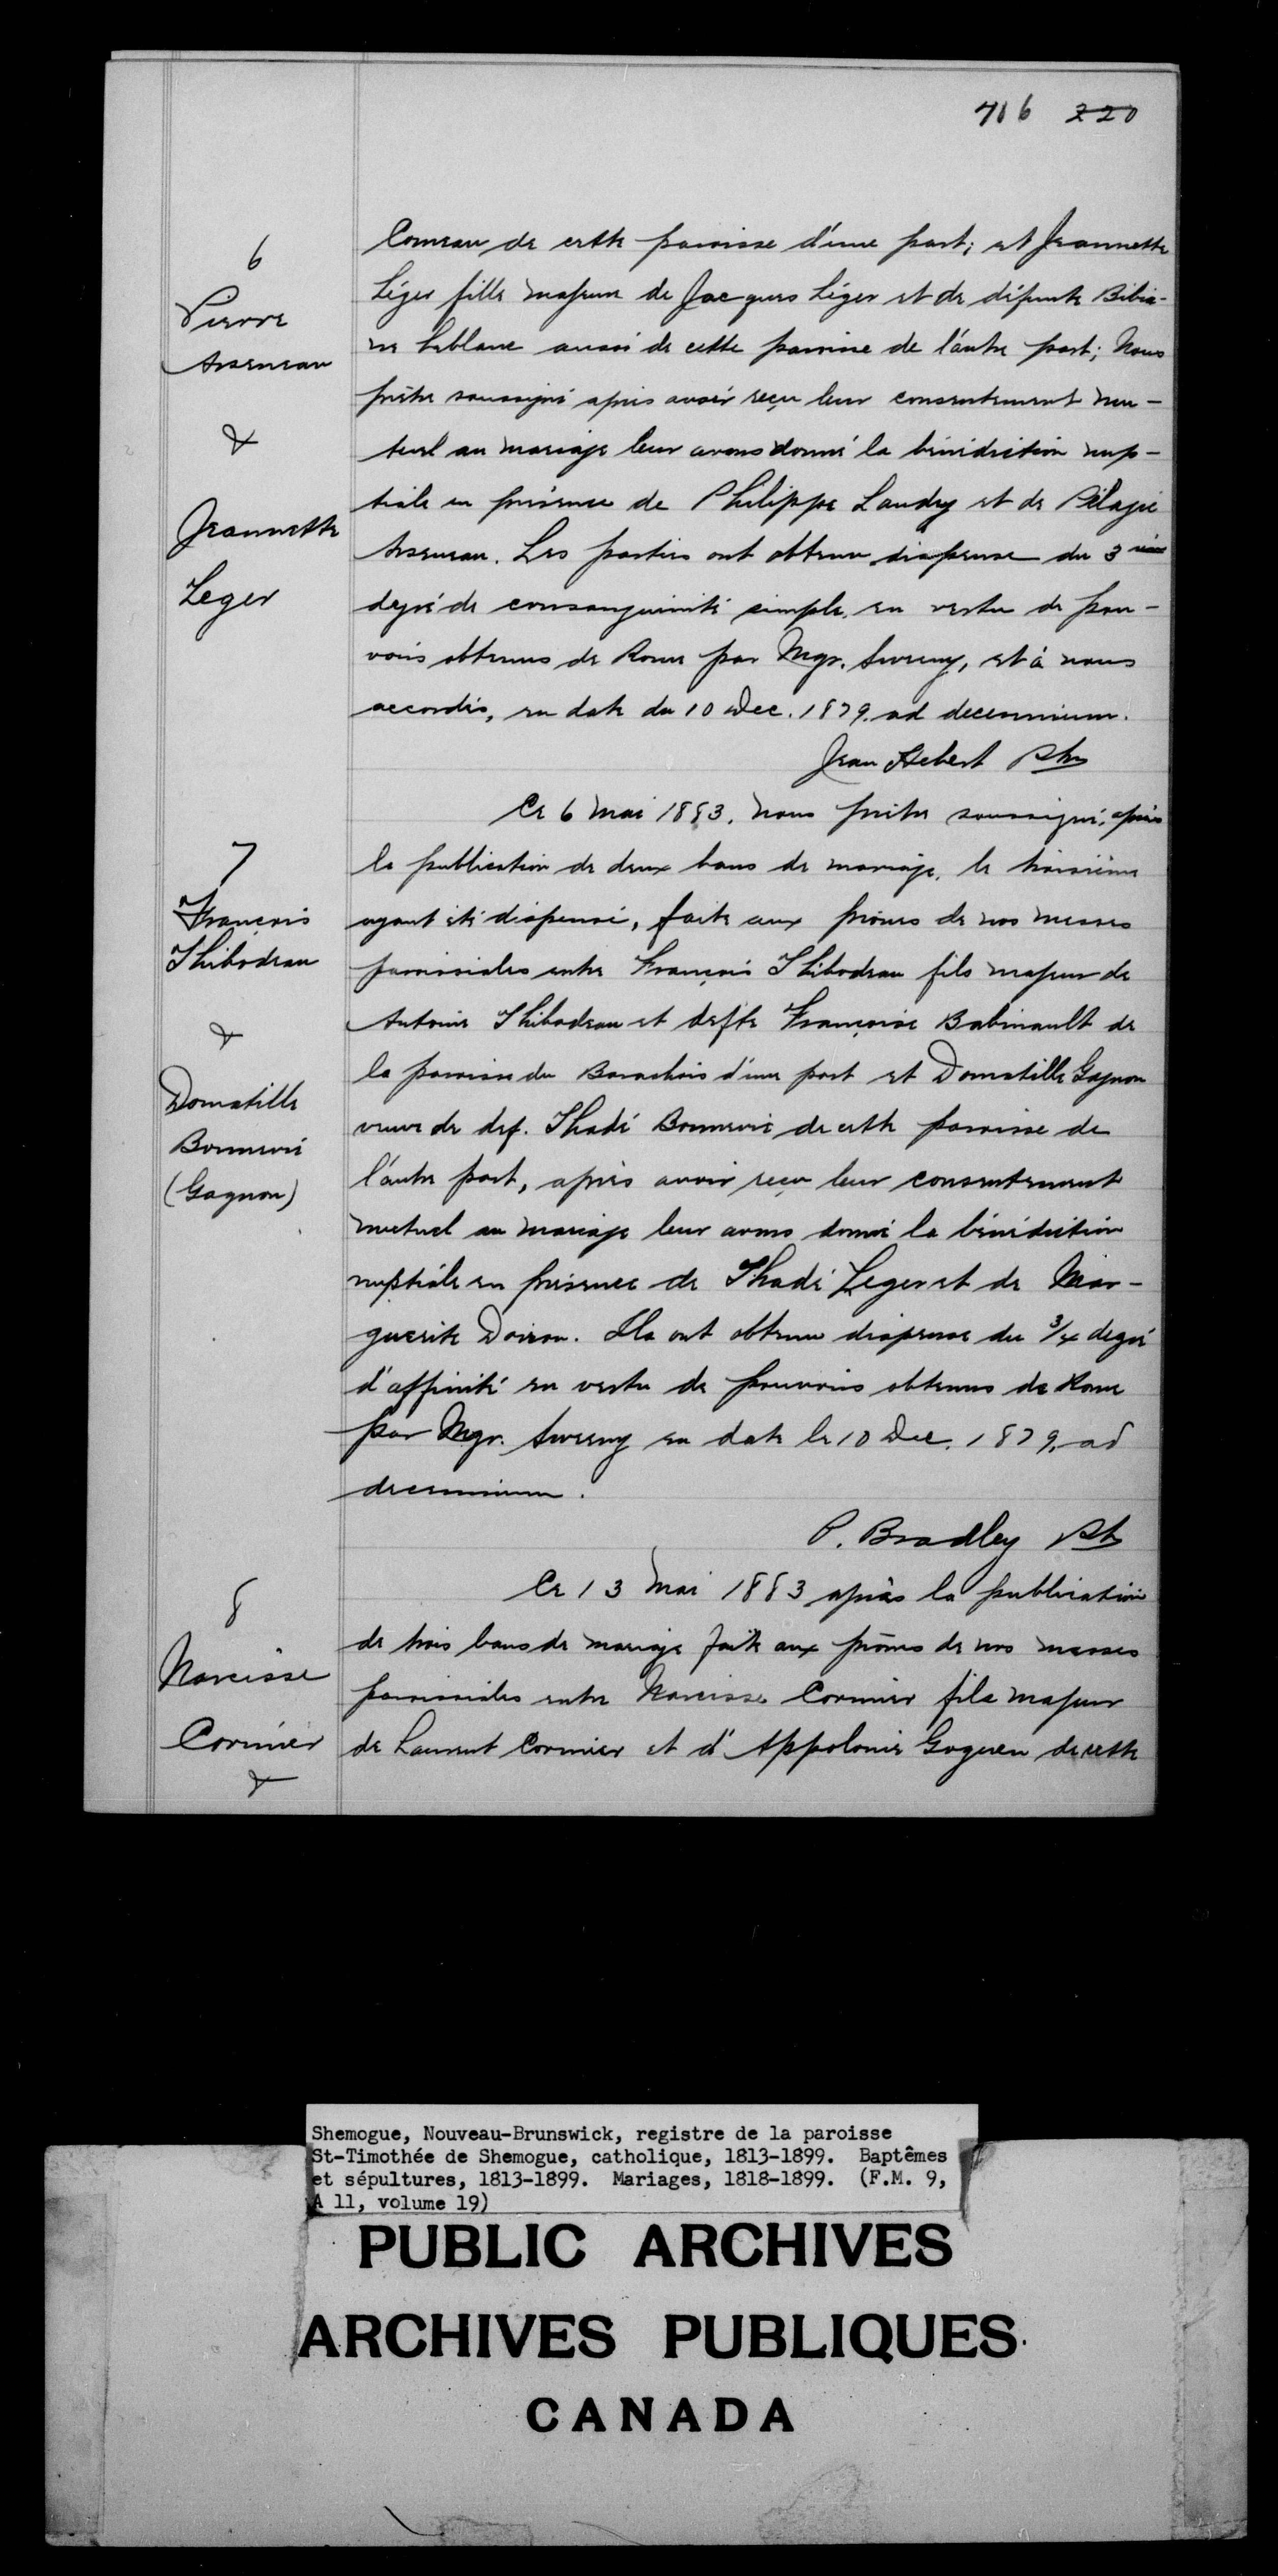 716 220
6
Pierre
Arseneau
&
Jeannette
Leger
Comeau de cette paroisse d'une part; et Jeannette
Léger fille majeure de Jacques Léger et de défunte Bibia-
ne Leblanc aussi de cette paroisse de l'autre part; Nous
prêtre soussigné après avoir reçu leur consentement mu-
tuel au mariage leur avons donné la bénédiction nup-
tiale en présence de Philippe Landry et de Pélagie
Arseneau. Les parties ont obtenu dispense du 3ième
degré de consanguinité simple en vertu de pou-
voirs obtenus de Rome par Mgr. Sweeny, et à nous
accordés, en date du 10 Dec. 1879 ad decennium.
Jean Hebert Ptre
7
François
Thibodeau
&
Domatille
Bonnevie
(Gagnon)
Ce 6 mai 1883. nous prêtre soussigné, après
la publication de deux bans de mariage, le troisième
ayant été dispensé, faite aux prônes de nos messes
paroissiales entre François Thibodeau fils majeur de
Antoine Thibodeau et defte Françoise Babinault de
la paroisse du Barachois d'une part et Domatille Gagnon
veuve de def. Thadé Bonnevie de cette paroisse de
l'autre part, après avoir reçu leur consentement
mutuel au mariage leur avons donné la bénédiction
nuptiale en présence de Thadé Leger et de Mar-
guerite Doiron. Ils ont obtenu dispense du 3/4 degré
d'affinité en vertu de pouvoirs obtenus de Rome
par Mgr. Sweeny en date le 10 Dec. 1879, ad
decennium.
P. Bradley Pt
8
Narcisse
Cormier
&
Ce 13 Mai 1883 après la publication
de trois bans de mariage faite aux prônes de nos messes
paroissiales entre Narcisse Cormier fils majeur
de Laurent Cormier et d'Appolonie Goguen de cette
Shemogue, Nouveau-Brunswick, registre de la paroisse
St-Timothée de Shemogue, catholique, 1813-1899. Baptêmes
et sépultures, 1813-1899. Mariages, 1818-1899. (F.M. 9,
A 11, volume 19)
PUBLIC ARCHIVES
ARCHIVES PUBLIQUES
CANADA